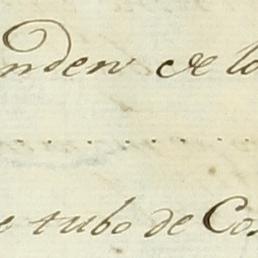 nden de lo
e tubo de Cos